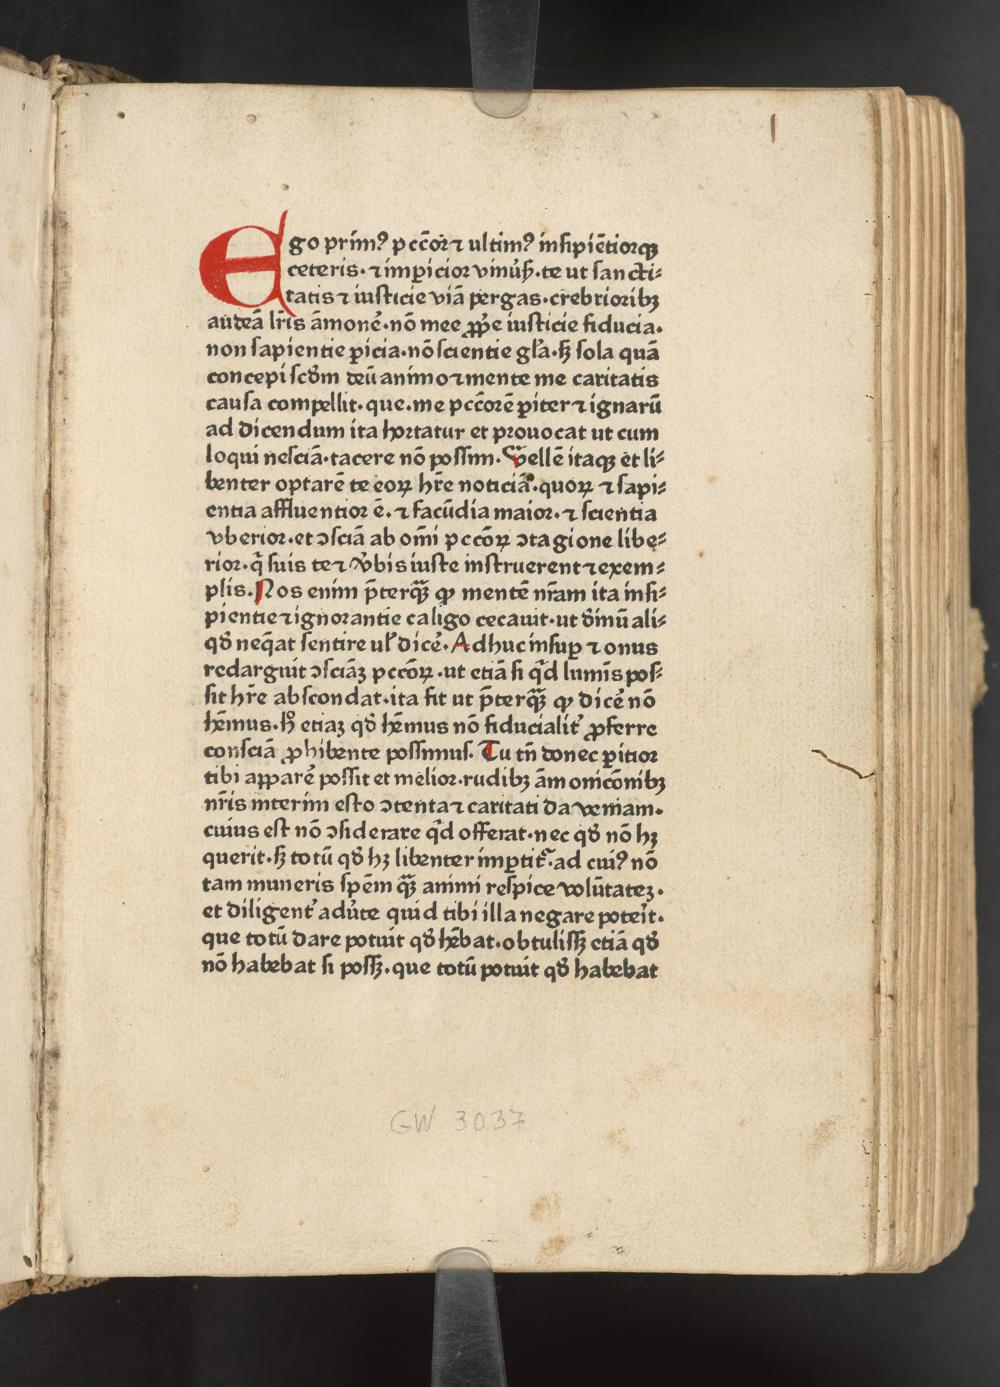 Ego prim⁹ pcc̄oꝝ ⁊ ultim⁹ insipiētiorqꝫ
ceteris·⁊ imꝑicior vniu͛sꝭ·te ut sancti⸗
tatis ⁊ iusticie viā pergas·crebrioribꝫ
audeā lr̄is āmonē·nō mee ꝓp̄e iusticie fiducia·
non sapientie ꝑicia·nō scientie gl̄a·sꝫ sola quā
concepi scd̄m deū animo ⁊ mente me caritatis
causa compellit·que·me pcc̄orē ꝑiter ⁊ ignarū
ad dicendum ita hortatur et prouocat ut cum
loqui nesciā·tacere nō possim·Vellē itaqꝫ et li⸗
benter optarē te eoꝝ hr̄e noticiā·quoꝝ ⁊ sapi⸗
entia affluentior ē·⁊ facūdia maior·⁊ scientia
vberior·et ɔsciā ab om̄i pcc̄oꝝ ɔtagione libe⸗
rior·q̄ suis te ⁊ v̄bis iuste instruerent ⁊ exem⸗
plis·Nos enim p̄terqꝫ̄ ꝙ mentē nr̄am ita insi⸗
pientie ⁊ ignorantie caligo cecauit·ut diuinū ali⸗
qd̄ neq̄at sentire ul̄ dicē·Adhuc insuꝑ ⁊ onus
redarguit ɔsciāꝫ pcc̄oꝝ·ut etiā si q̄d luminis pos⸗
sit hr̄e abscondat·ita fit ut p̄terqꝫ̄ ꝙ dicē nō
hēmus·hͦ etiaꝫ qd̄ hēmus nō fiducialit᷑ ꝓferre
consciā ꝓhibente possimus·Tu tn̄ donec ꝑitior
tibi apparē possit et melior·rudibꝫ āmonicōnibꝫ
nr̄is interim esto ɔtenta ⁊ caritati da veniam·
cuius est nō ɔsiderare q̄d offerat·nec qd̄ nō hꝫ
querit·sꝫ totū qd̄ hꝫ libenter imꝑtit᷑·ad cui⁹ nō
tam muneris spēm qꝫ̄ animi respice volūtateꝫ·
et diligent᷑ adu͛te quid tibi illa negare poteit·
que totū dare potuit qd̄ hēbat·obtulissꝫ etiā qd̄
nō habebat si possꝫ·que totū potuit qd̄ habebat
GW 3037